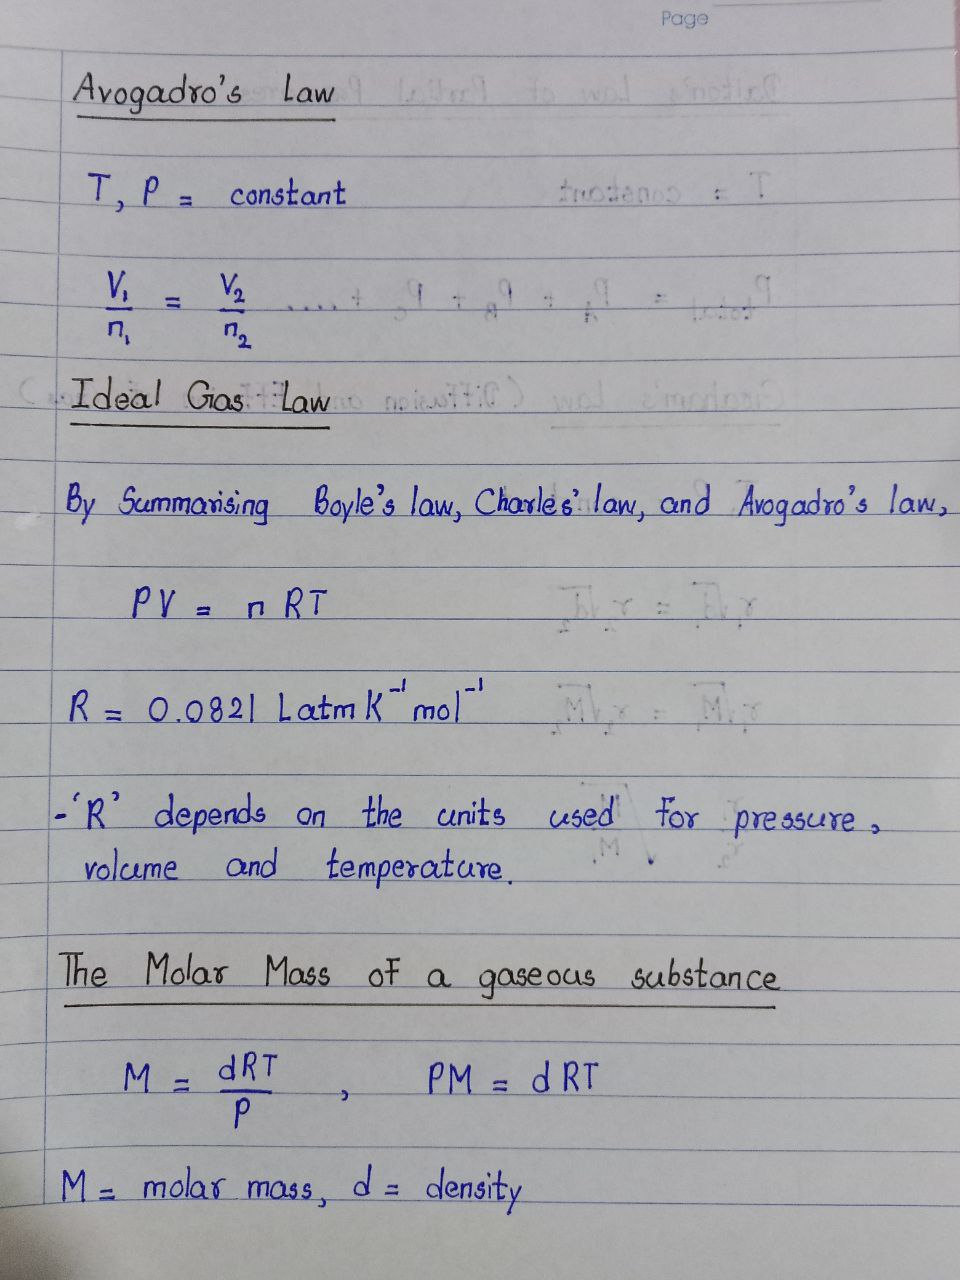 Page
Avogadro's Law
T, P = constant
V₁/n₁ = V₂/n₂
Ideal Gas Law
By Summarising Boyle's law, Charles' law, and Avogadro's law,
PV = nRT
R = 0.0821 L atm K⁻¹ mol⁻¹
-'R' depends on the units used for pressure,
volume and temperature.
The Molar Mass of a gaseous substance
M = dRT/P , PM = dRT
M = molar mass, d = density